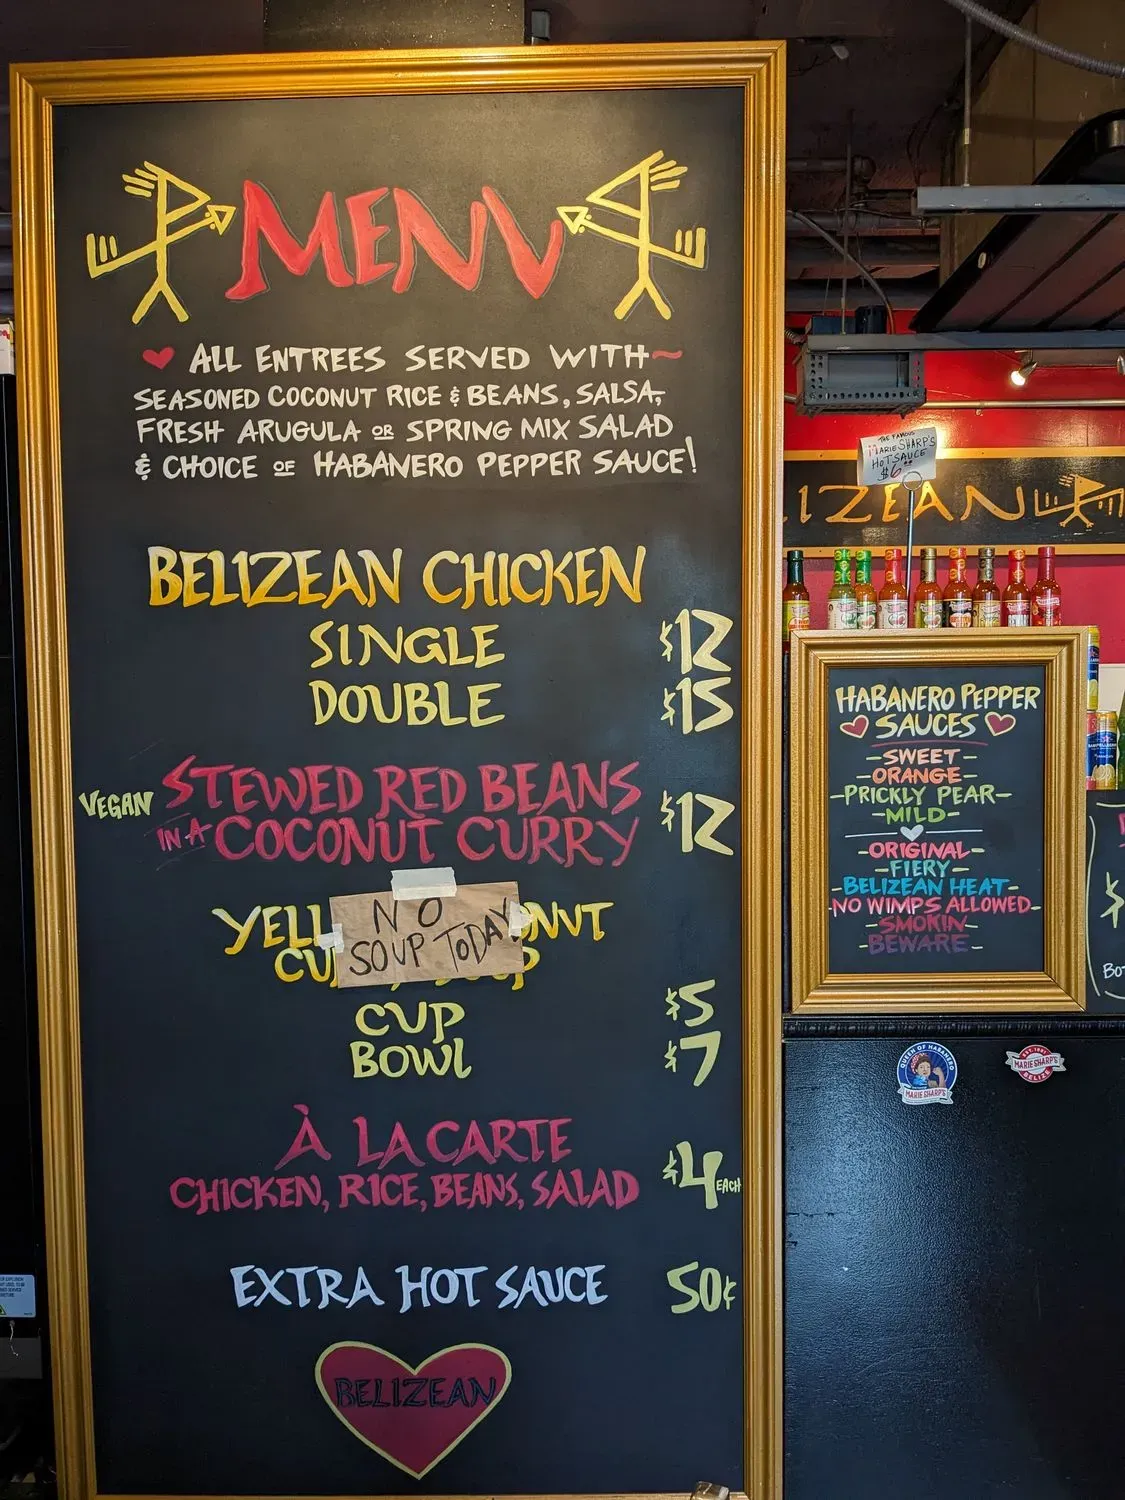 MENU
ALL ENTREES SERVED WITH~
SEASONED COCONUT RICE & BEANS, SALSA,
FRESH ARUGULA OR SPRING MIX SALAD
& CHOICE OF HABANERO PEPPER SAUCE!
BELIZEAN CHICKEN
SINGLE $12
DOUBLE $15
VEGAN STEWED RED BEANS
IN A COCONUT CURRY $12
NO
SOUP TODAY
CUP $5
BOWL $7
À LA CARTE
CHICKEN, RICE, BEANS, SALAD $4 EACH
EXTRA HOT SAUCE 50¢
BELIZEAN
THE FAMOUS
MARIE SHARP'S
HOT SAUCE
$6
IZEAN
HABANERO PEPPER
SAUCES
-SWEET
ORANGE-
-PRICKLY PEAR-
-MILD-
-ORIGINAL-
-FIERY-
-BELIZEAN HEAT-
-NO WIMPS ALLOWED-
-SMOKIN-
-BEWARE-
QUEEN OF HABANERO
MARIE SHARP'S
MARIE SHARP'S
BELIZE